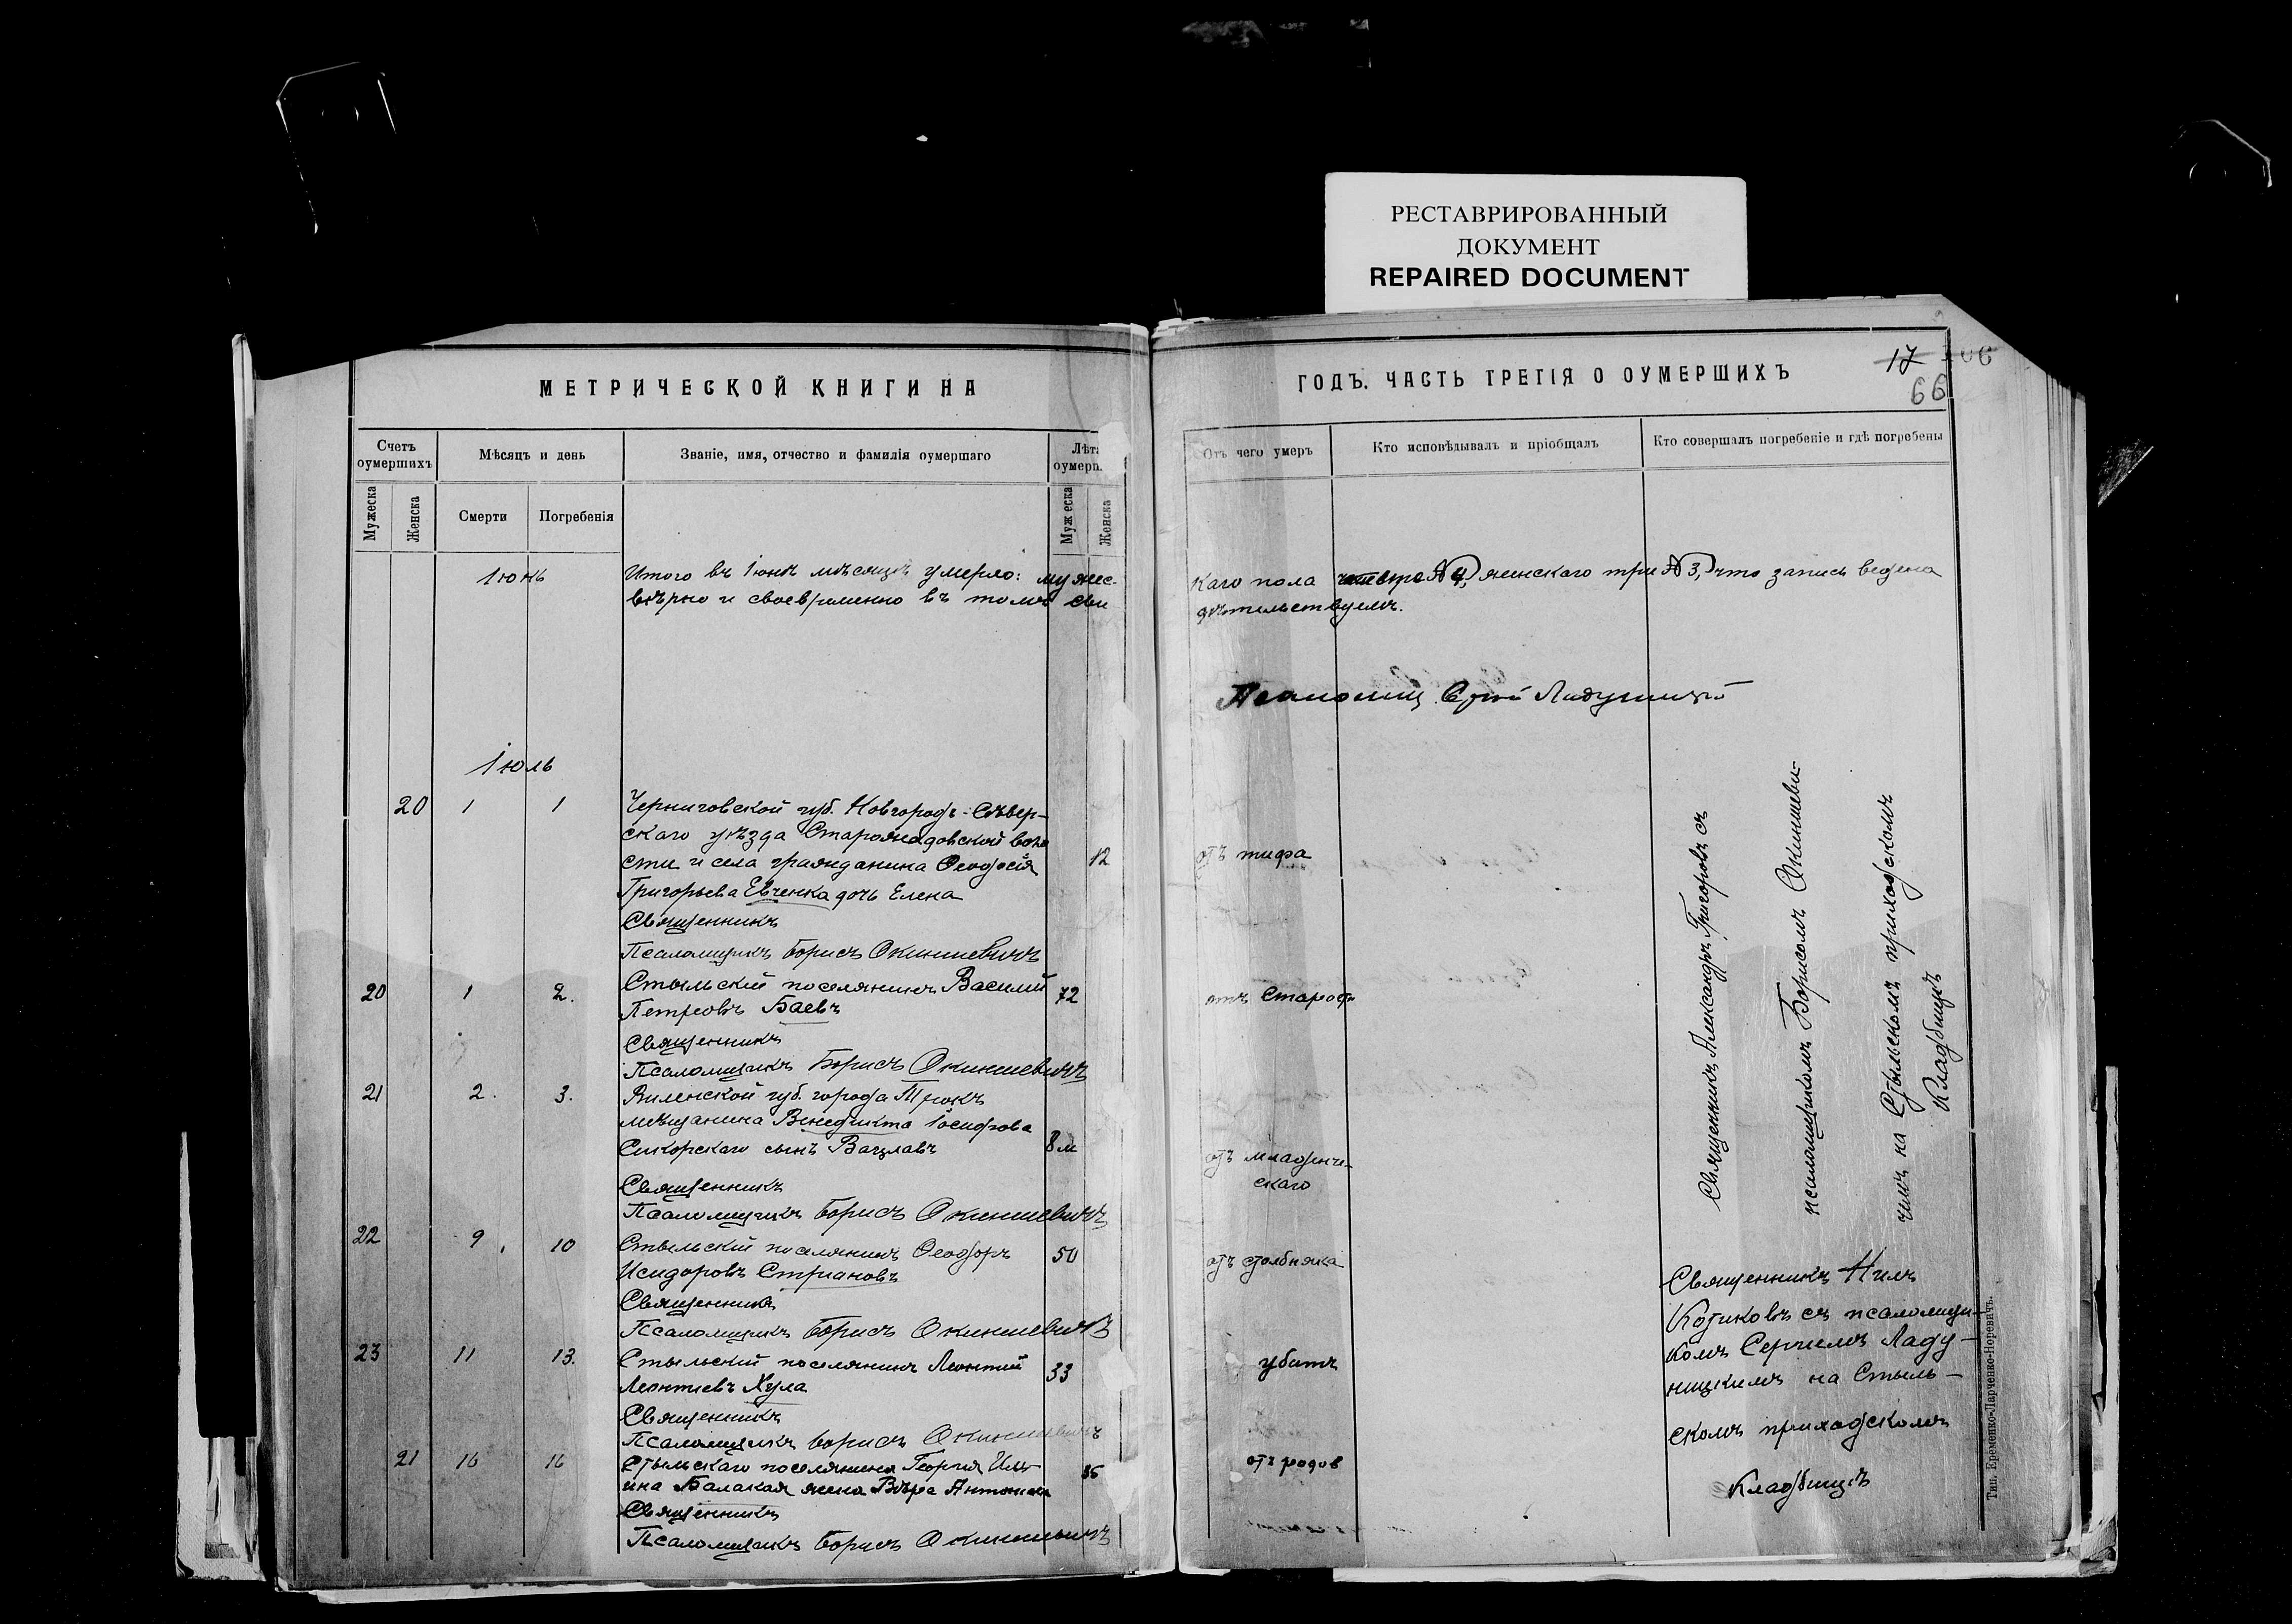 РЕСТАВРИРОВАННЫЙ
ДОКУМЕНТ
REPAIRED DOCUMENT
МЕТРИЧЕСКОЙ КНИГИ НА
Счетъ оумершихъ
Мѣсяцъ и день
Званіе, имя, отчество и фамилія оумершаго
Лѣта оумерш.
Мужеска
Женска
Смерти
Погребенія
Мужеска
Женска
Іюнь
Итого въ Іюнѣ мѣсяцѣ умерло: мужес-
вѣрно и своевременно въ томъ сви
Іюль
20 1 1
Черниговской губ. Новгородъ-Сѣвер-
скаго уѣзда воло
сти и села гражданина Ѳеодосія
12
Григорьева Евченка дочь Елена
Священникъ
Псаломщикъ Борисъ Окиншевичъ
20 1 2.
Стыльскій поселянинъ Василій
72
Петровъ Баевъ
Священникъ
Псаломщикъ Борисъ Окиншевичъ
21 2. 3.
Виленской губ. города Трокъ
мѣщанина Венедикта Іосифова
Сикорскаго сынъ Вацлавъ
8 м
Священникъ
Псаломщикъ Борисъ Окиншевичъ
22 9 10
Стыльскій поселянинъ Ѳеодоръ
50
Исидоровъ Стріановъ
Священникъ
Псаломщикъ Борисъ Окиншевичъ
23 11 13.
Стыльскій поселянинъ Леонтій
33
Леонтіевъ Хула
Священникъ
Псаломщикъ Борисъ Окиншевичъ
21 16 16
Стыльскаго поселянина Георгія Иль-
ина Балакая жена Вѣра Антонова
Священникъ
Псаломщикъ Борисъ Окиншевичъ
ГОДЪ. ЧАСТЬ ТРЕТІЯ О ОУМЕРШИХЪ
17
66
Отъ чего умеръ
Кто исповѣдывалъ и пріобщалъ
Кто совершалъ погребеніе и гдѣ погребены
каго пола четыре (№ 4,) женскаго три (№ 3,) что запись ведена
дѣтельствуемъ.
Псаломщ. Сергій Ладуницкій
отъ тифа
отъ старости
отъ младенче-
скаго
отъ столбняка
убитъ
отъ родов
Священникъ Александръ Григоровъ съ
псаломщикомъ Борисомъ Окиншеви-
чемъ на Стыльскомъ приходскомъ
кладбищѣ
Священникъ Нилъ
Котиковъ съ псаломщи-
комъ Сергіемъ Ладу-
ницкимъ на Стыль-
скомъ приходскомъ
кладбищѣ
Тип. Еременко-Ларченко-Норевичъ.